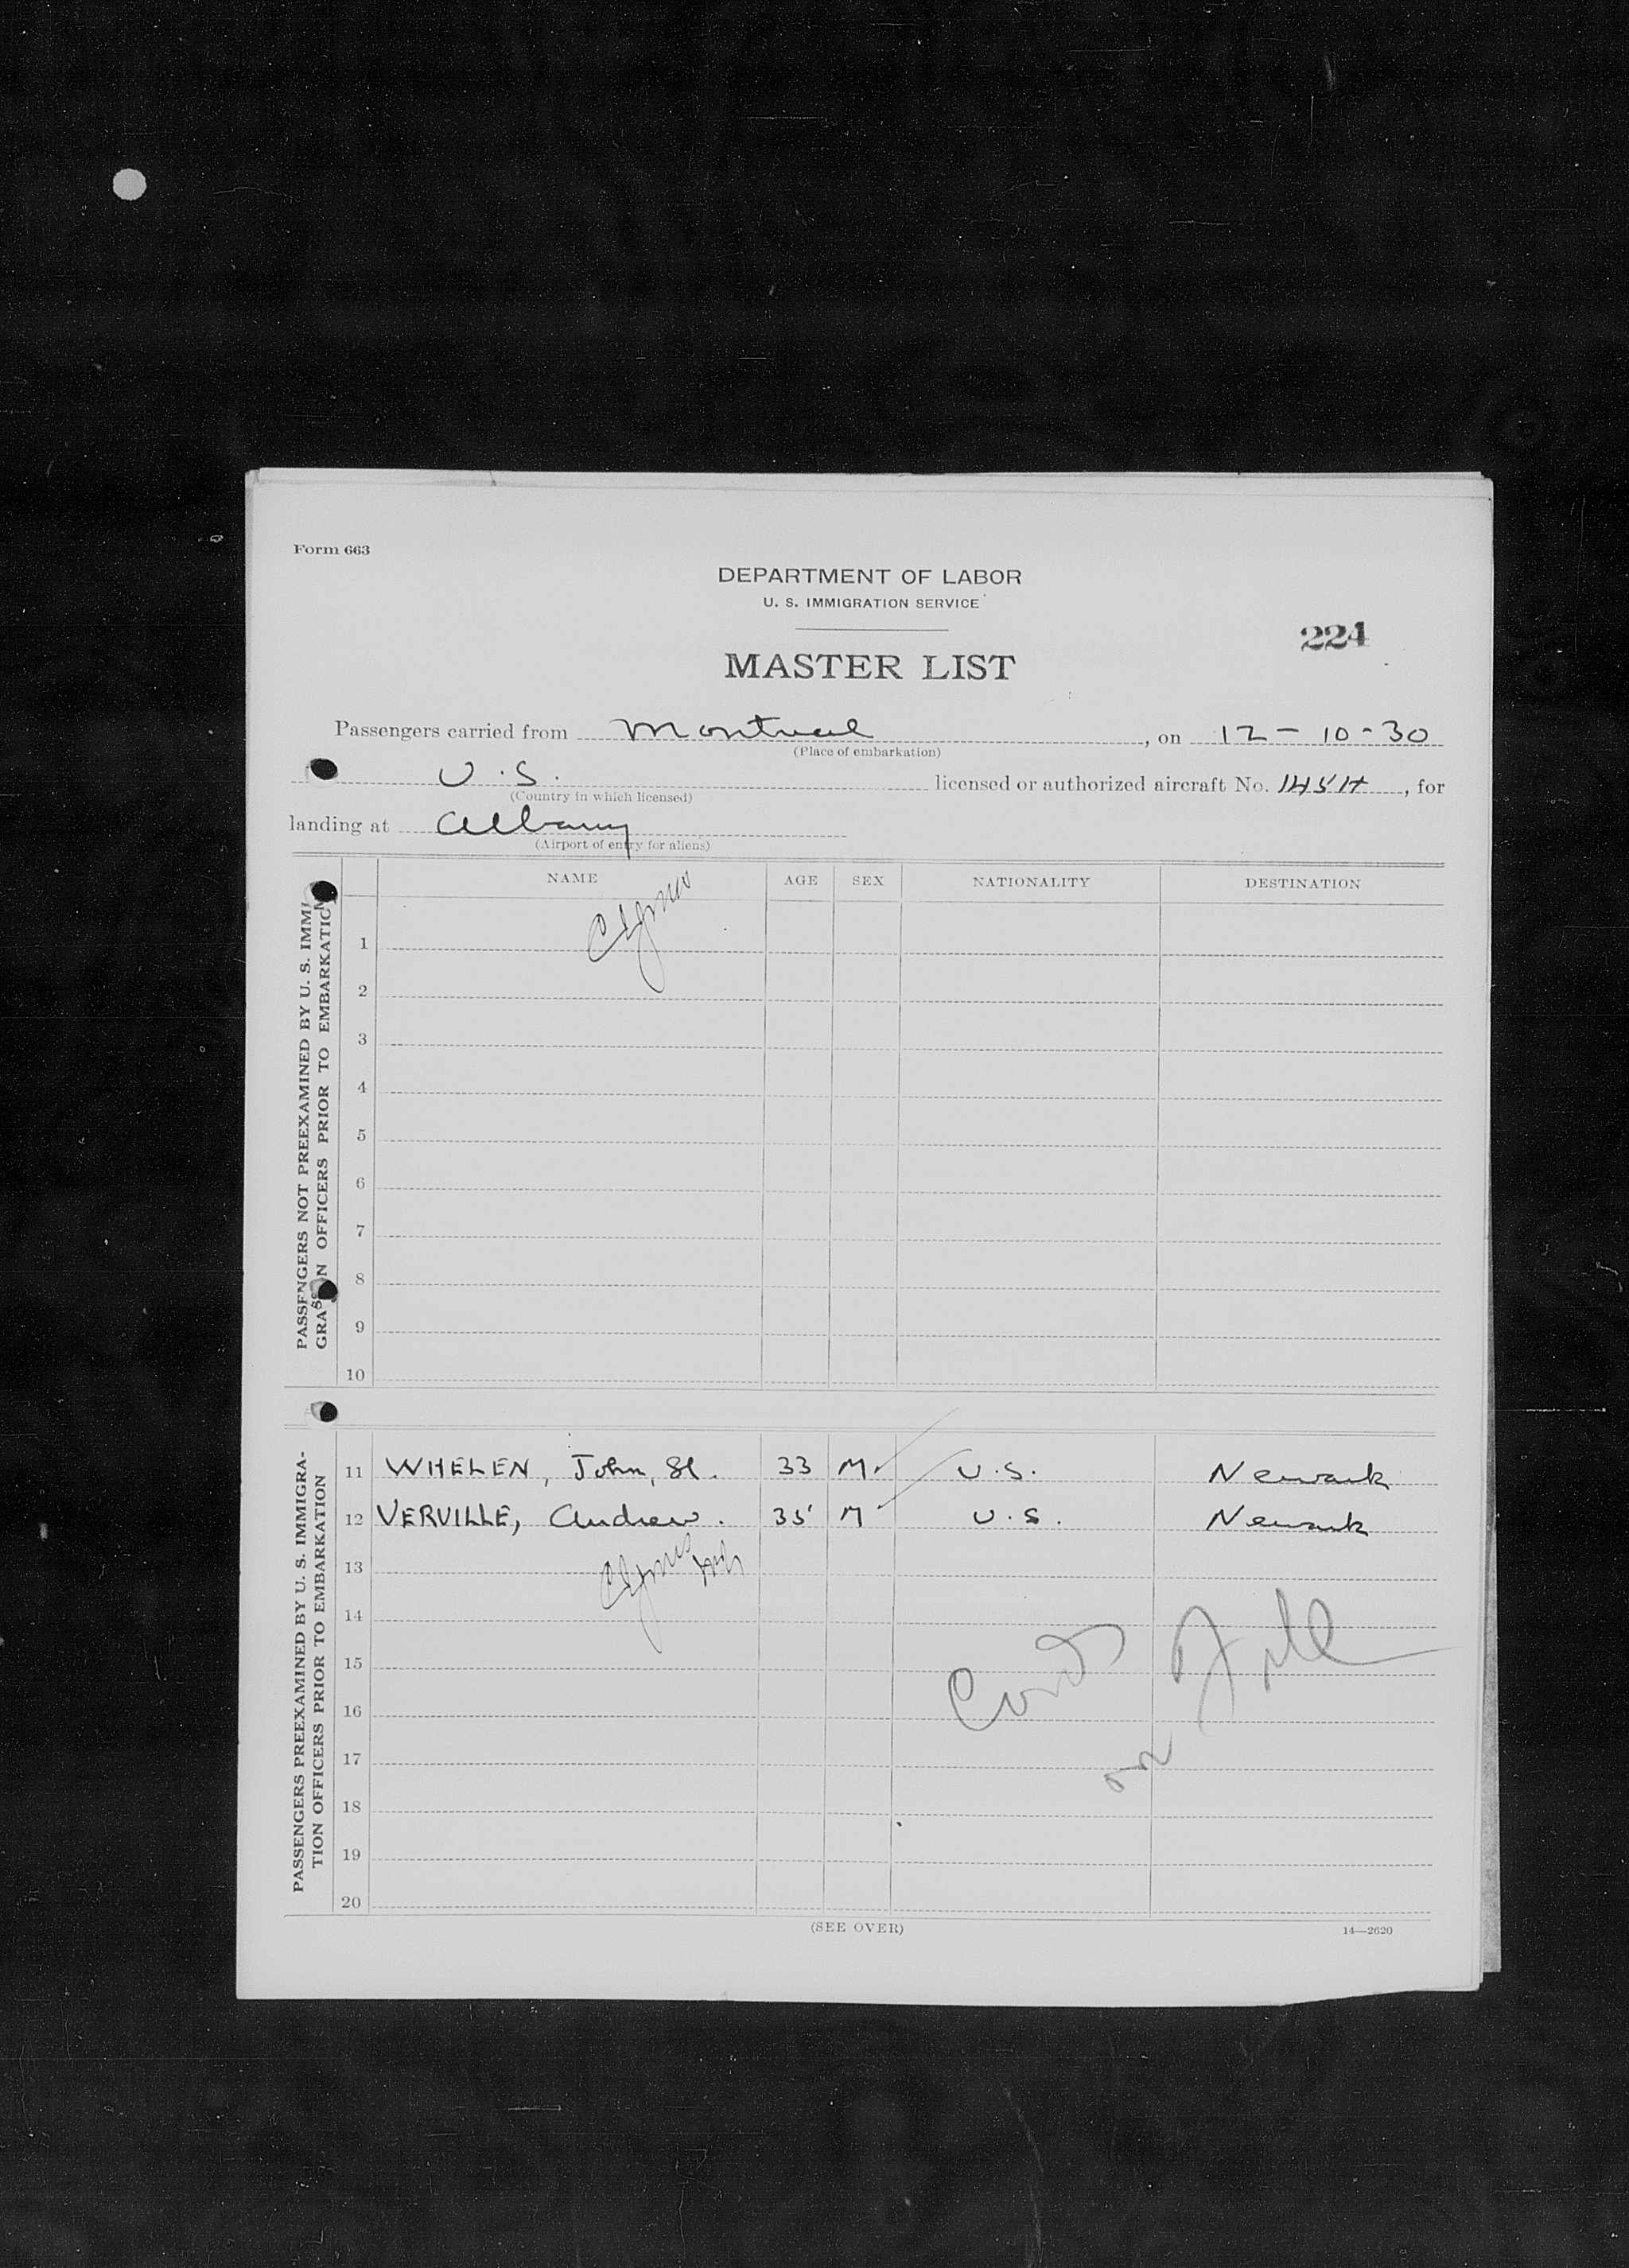 Form 663
DEPARTMENT OF LABOR
U. S. IMMIGRATION SERVICE
224
MASTER LIST
Passengers carried from Montreal, on 12-10-30
(Place of embarkation)
U.S. licensed or authorized aircraft No. 145H, for
(Country in which licensed)
landing at Albany
(Airport of entry for aliens)
NAME AGE SEX NATIONALITY DESTINATION
PASSENGERS NOT PREEXAMINED BY U. S. IMMI
GRA N OFFICERS PRIOR TO EMBARKATION
1
2
3
4
5
6
7
8
9
10
PASSENGERS PREEXAMINED BY U. S. IMMIGRA-
TION OFFICERS PRIOR TO EMBARKATION
11 WHELEN, John, St. 33 M. U.S. Newark
12 VERVILLE, Andrew. 35 M U.S. Newark
13
14
15
16
17
18
19
20
(SEE OVER)
14—2620